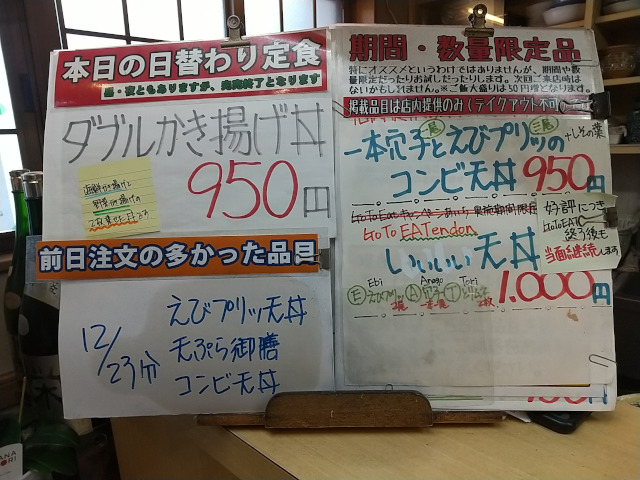 本日の日替わり定食
昼・夜ともありますが、完売終了となります
ダブルかき揚げ丼
海鮮かき揚げと
野菜かき揚げの
2枚乗せた丼です
950円
前日注文の多かった品目
12/23分
えびプリッツ天丼
天ぷら御膳
コンビ天丼
期間・数量限定品
特にオススメというわけではありませんが、期間や数
量限定だったりお試しだったりします。次回ご来店時は
ないかもしれません。※ご飯大盛りは50円増となります。
掲載品目は店内提供のみ(テイクアウト不可)
一本穴子とえびプリッツの
+しその葉
コンビ天丼 950円
GoToEATendon
いいいい天丼
好評につき
GoToEAT
終了後も
当面継続します
Ebi
Anago
Tori
E えびプリッツ A 穴子 T
1,000円